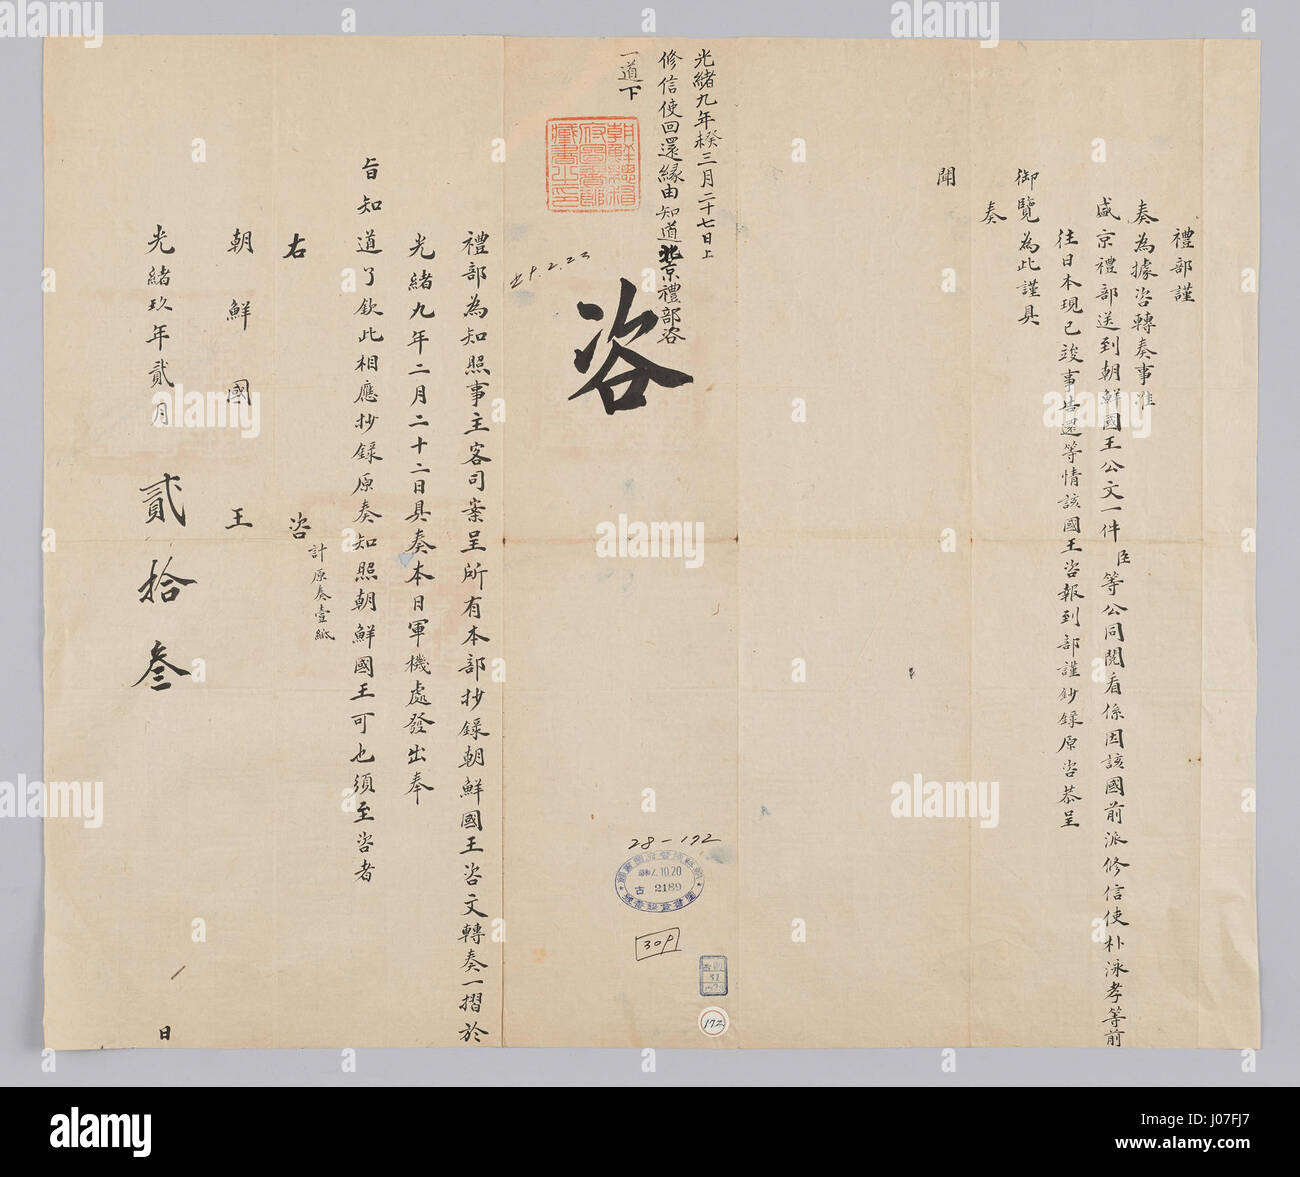 禮部謹
奏為據咨轉奏事准
盛京禮部送到朝鮮國王公文一件臣等公同閱看係因該國前派修信使朴泳孝等前
往日本現已竣事告還等情該國王咨報到部謹鈔錄原咨恭呈
御覽為此謹具
奏
聞
光緒九年癸未三月二十七日上
修信使回還緣由知道北京禮部咨
一道下
朝鮮總督
府圖書館
藏書之印
咨
29.2.23
禮部為知照事主客司案呈所有本部抄錄朝鮮國王咨文轉奏一摺於
光緒九年二月二十二日具奏本日軍機處發出奉
旨知道了欽此相應抄錄原奏知照朝鮮國王可也須至咨者
計原奏壹紙
右 咨
朝鮮國王
光緒玖年貳月 貳拾叁 日
28-172
10.20
古 2189
309
172
alamy
Image ID: J07FJ7
www.alamy.com